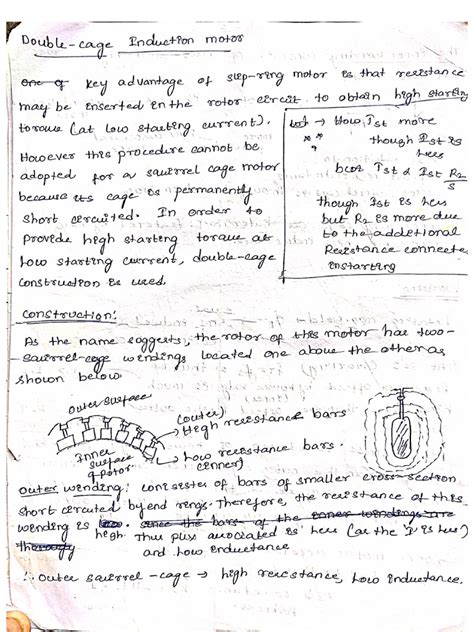 Double-cage Induction motor
one of key advantage of slip-ring motor is that resistance
may be inserted in the rotor circuit to obtain high starting
torque (at low starting current).
However this procedure cannot be
adopted for a squirrel cage motor
because its cage is permanently
short circuited. In order to
provide high starting torque at
low starting current, double-cage
construction is used.
→ How Tst more
though Ist is
less
bcoz Tst α Ist R2/S
though Ist is less
but R2 is more due
to the additional
Resistance connected
in starting
Construction:
As the name suggests, the rotor of this motor has two-
squirrel-cage windings located one above the other as
shown below
outer surface
(outer)
High resistance bars
Low resistance bars.
(inner)
Inner
surface
of rotor
outer winding: consists of bars of smaller cross-section
short circuited by end rings. Therefore, the resistance of this
winding is low. since the bars of the inner windings are
thorough high. Thus flux associated is less (as the I is less)
and low inductance
∴ outer squirrel-cage → high resistance, low inductance.